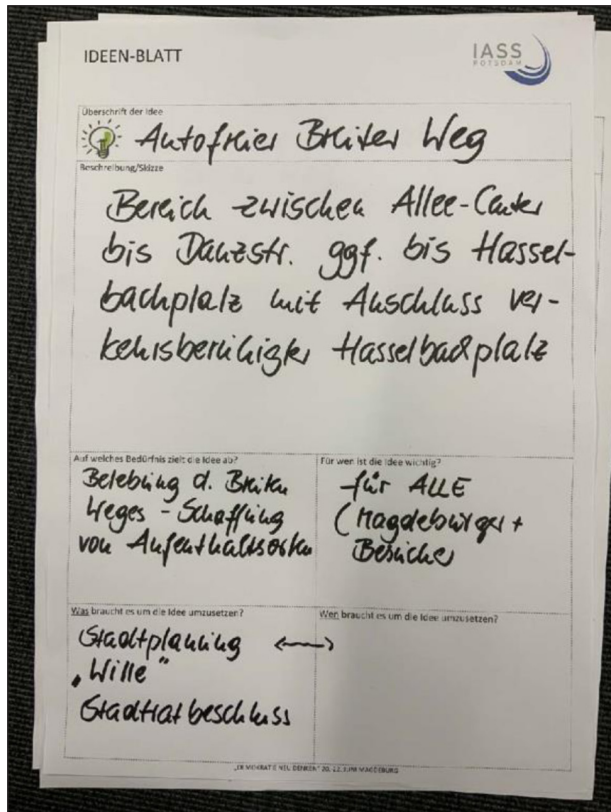 IDEEN-BLATT
IASS
POTSDAM
Überschrift der Idee
Autofreier Breiter Weg
Beschreibung/Skizze
Bereich zwischen Allee-Center
bis Danzstr. ggf. bis Hassel-
bachplatz mit Anschluss ver-
kehrsberuhigter Hasselbachplatz
Auf welches Bedürfnis zielt die Idee ab?
Belebung d. Breiten
Weges - Schaffung
von Aufenthaltsorten
Für wen ist die Idee wichtig?
für ALLE
(Magdeburger +
Besucher
Was braucht es um die Idee umzusetzen?
Stadtplanung ⟷
„Wille"
Stadtratbeschluss
Wen braucht es um die Idee umzusetzen?
„DEMOKRATIE NEU DENKEN" 20.-22. JUNI MAGDEBURG